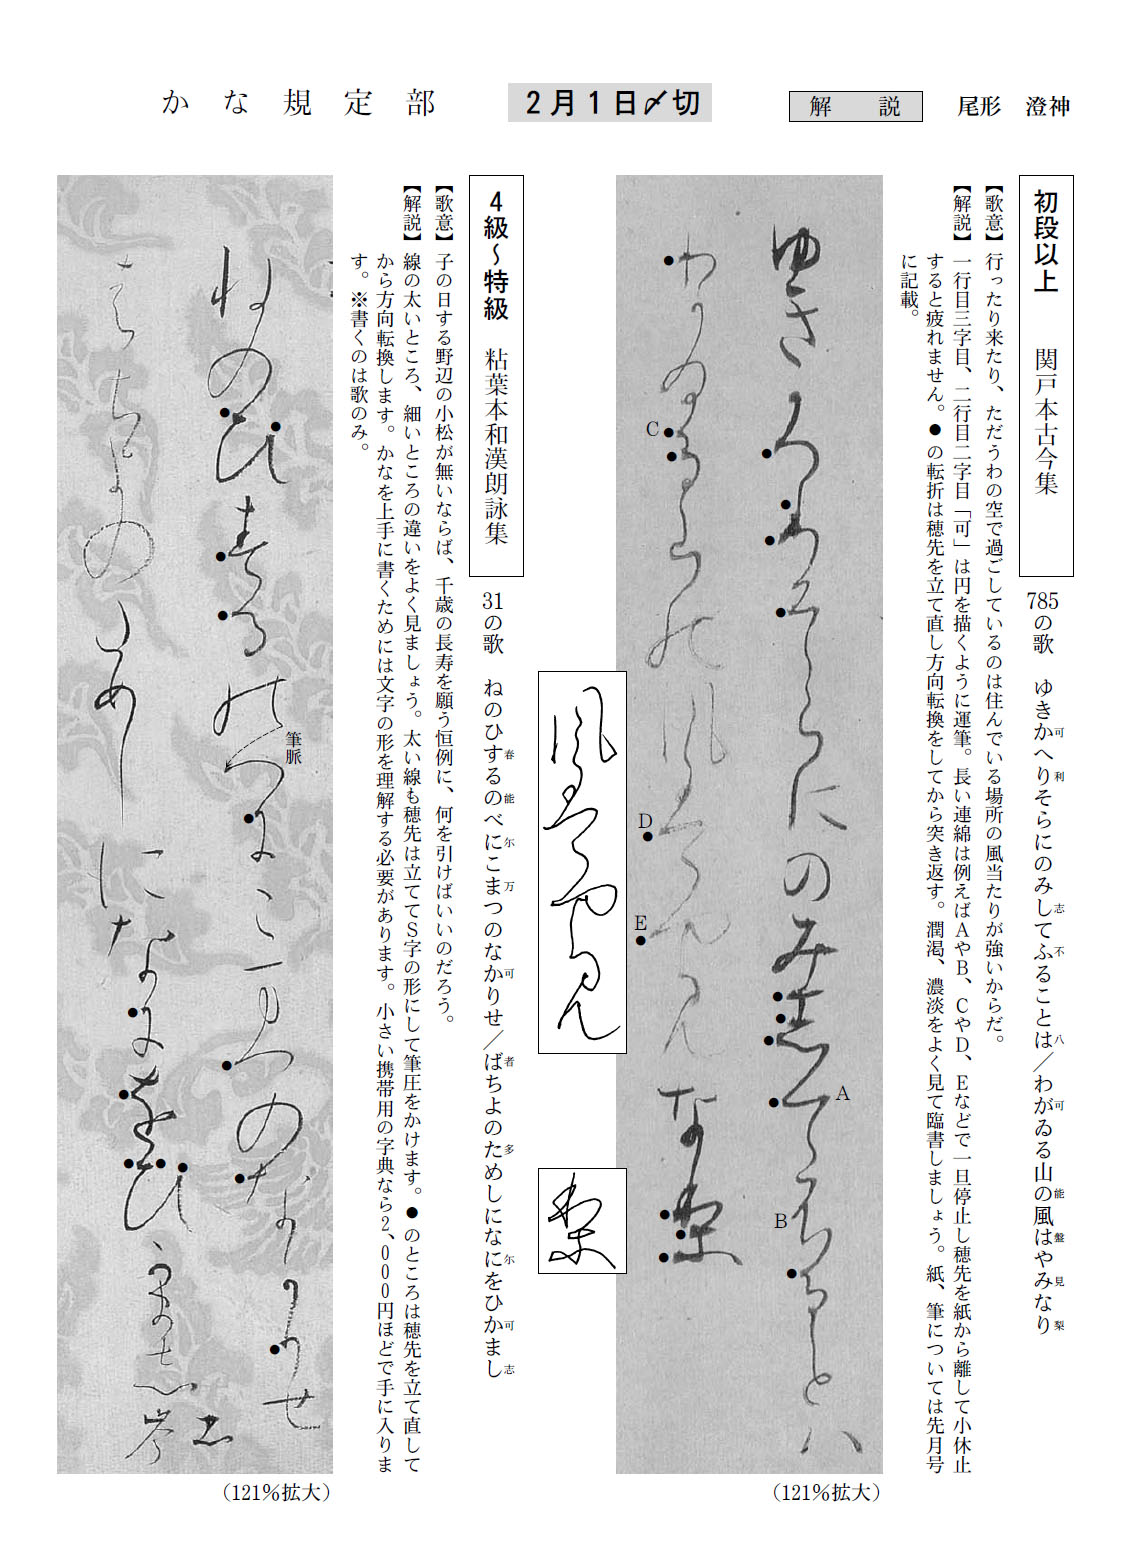 かな規定部　2月1日〆切　解説　尾形　澄神
初段以上　関戸本古今集
785の歌　ゆきか可へり利そらにのみし志てふ不ることは八／わが可ゐる山の能風は盤やみ見なり梨
【歌意】行ったり来たり、ただうわの空で過ごしているのは住んでいる場所の風当たりが強いからだ。
【解説】一行目三字目、二行目二字目「可」は円を描くように運筆。長い連綿は例えばAやB、CやD、Eなどで一旦停止し穂先を紙から離して小休止
すると疲れません。●の転折は穂先を立て直し方向転換をしてから突き返す。潤渇、濃淡をよく見て臨書しましょう。紙、筆については先月号
に記載。
A
B
C
D
E
（121％拡大）
4級～特級　粘葉本和漢朗詠集
31の歌　ねのひす春るの能べに尓こま万つのなか可りせ／ば者ちよのた多めしになに尓をひか可まし志
【歌意】子の日する野辺の小松が無いならば、千歳の長寿を願う恒例に、何を引けばいいのだろう。
【解説】線の太いところ、細いところの違いをよく見ましょう。太い線も穂先は立ててS字の形にして筆圧をかけます。●のところは穂先を立て直して
から方向転換します。かなを上手に書くためには文字の形を理解する必要があります。小さい携帯用の字典なら2、000円ほどで手に入りま
す。※書くのは歌のみ。
筆脈
（121％拡大）